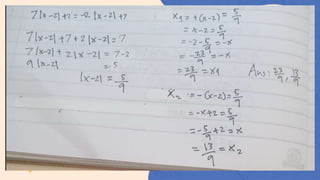 7|x-2|+2 = -2|x-2|+7
7|x-2|+7+2|x-2| = 7
7|x-2|+2|x-2| = 7-2
9|x-2| = 5
|x-2| = 5/9
x1 = +(x-2) = 5/9
= x-2 = 5/9
= -2-5/9 = -x
= -23/9 = -x
= 23/9 = x1
Ans: 23/9, 13/9
x2 = -(x-2) = 5/9
= -x+2 = 5/9
= -5/9+2 = x
= 13/9 = x2